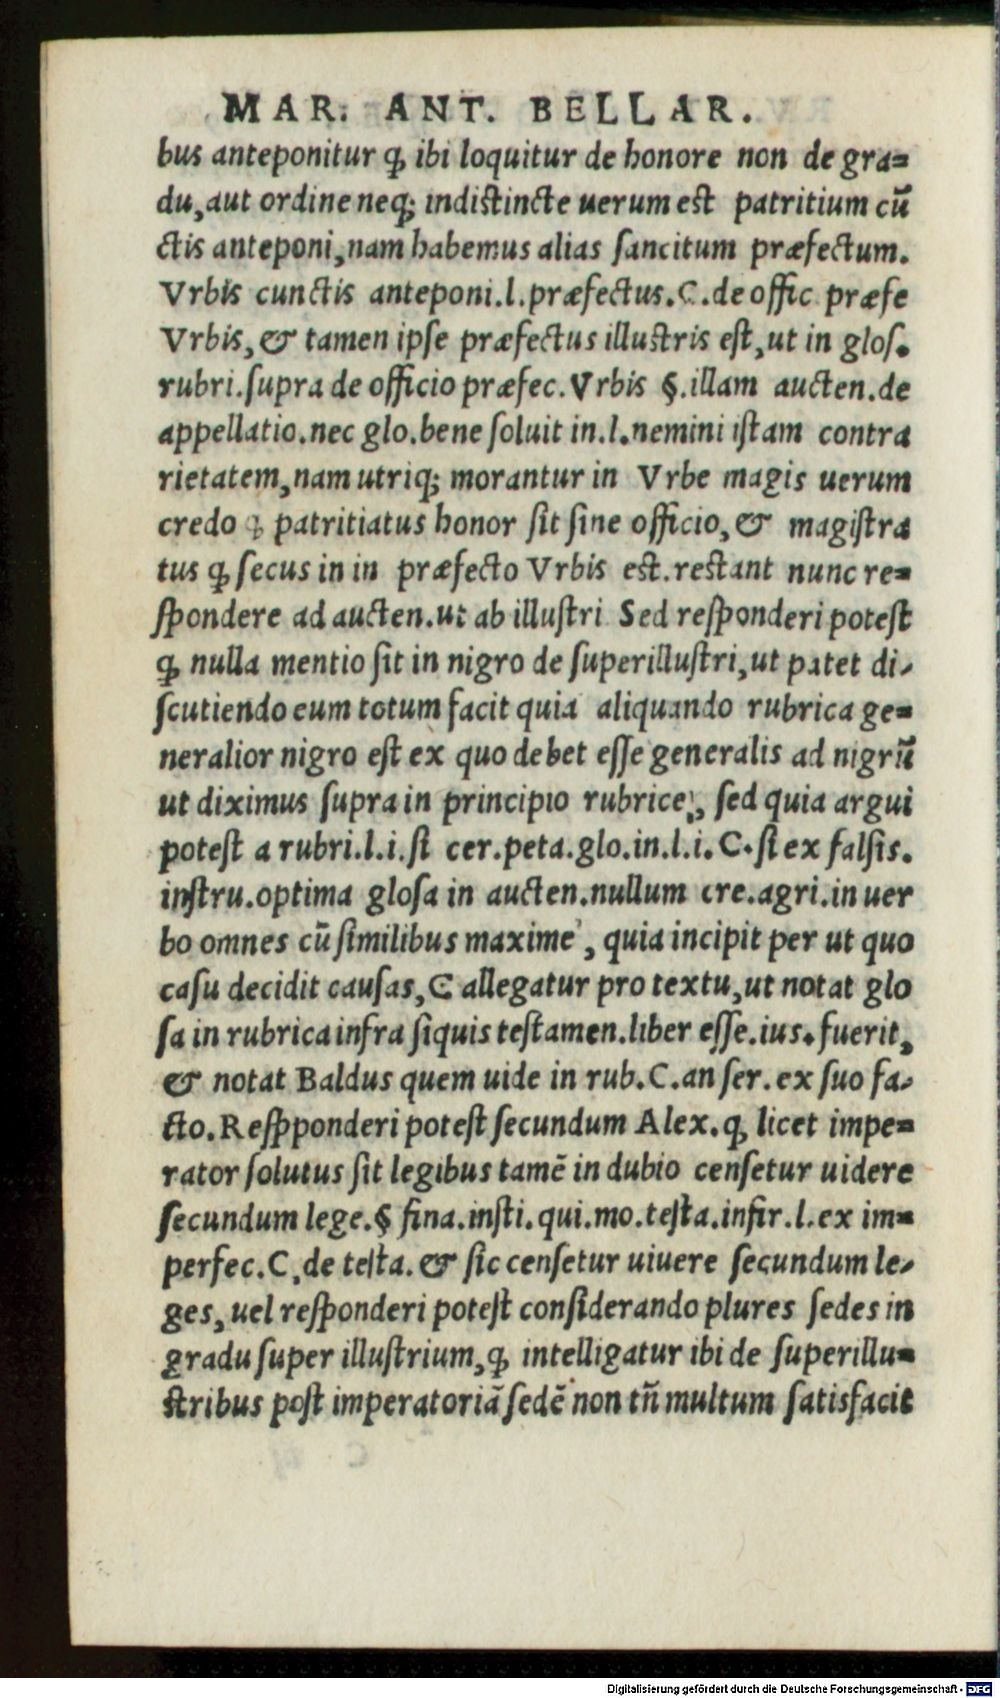 MAR. ANT. BELLAR.
bus anteponitur ꝙ ibi loquitur de honore non de gra=
du, aut ordine neq; indistincte uerum est patritium cū
ctis anteponi, nam habemus alias sancitum præfectum.
Vrbis cunctis anteponi.l.præfectus.C.de offic præfe
Vrbis, & tamen ipse præfectus illustris est, ut in glos.
rubri.supra de officio præfec.Vrbis §.illam aucten.de
appellatio.nec glo.bene soluit in.l.nemini istam contra
rietatem, nam utriq; morantur in Vrbe magis uerum
credo ꝙ patritiatus honor sit sine officio, & magistra
tus ꝙ secus in in præfecto Vrbis est.restant nunc re=
spondere ad aucten.ut ab illustri Sed responderi potest
ꝙ nulla mentio sit in nigro de superillustri, ut patet di-
scutiendo eum totum facit quia aliquando rubrica ge=
neralior nigro est ex quo debet esse generalis ad nigrū
ut diximus supra in principio rubrice, sed quia argui
potest a rubri.l.i.si cer.peta.glo.in.l.i.C.si ex falsis.
instru.optima glosa in aucten.nullum cre.agri.in uer
bo omnes cū similibus maxime, quia incipit per ut quo
casu decidit causas, C allegatur pro textu, ut notat glo
sa in rubrica infra siquis testamen.liber esse.ius.fuerit,
& notat Baldus quem uide in rub.C.an ser.ex suo fa-
cto.Respponderi potest secundum Alex.ꝙ licet impe=
rator solutus sit legibus tamē in dubio censetur uidere
secundum lege.§ fina.insti.qui.mo.testa.infir.l.ex im=
perfec.C.de testa.& sic censetur uiuere secundum le-
ges, uel responderi potest considerando plures sedes in
gradu super illustrium, ꝙ intelligatur ibi de superillu=
stribus post imperatoriā sedē non tñ multum satisfacit
Digitalisierung gefördert durch die Deutsche Forschungsgemeinschaft - DFG